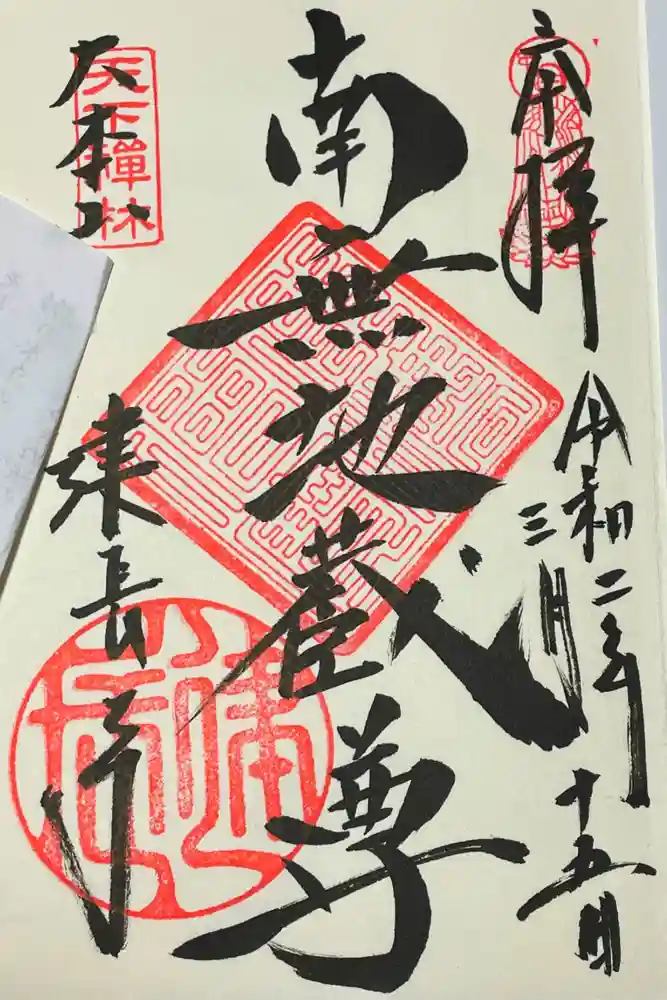 奉拝
令和二年
三月
十五日
南無地蔵尊
大本山
天下禪林
建長寺